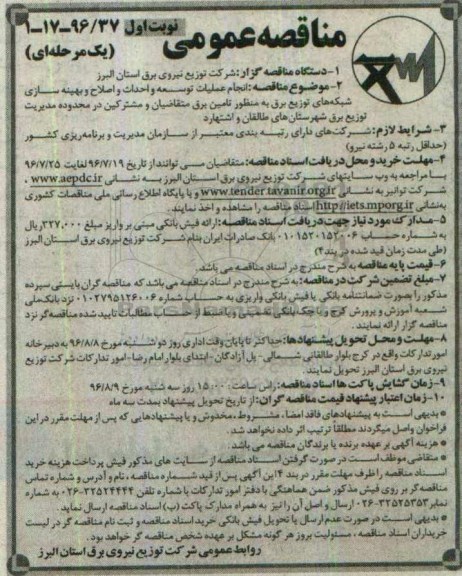 نوبت اول ۹۶/۳۷-۱۷-۱
مناقصه عمومی (یک مرحله‌ای)
۱-دستگاه مناقصه گزار: شرکت توزیع نیروی برق استان البرز
۲-موضوع مناقصه: انجام عملیات توسعه و احداث و اصلاح و بهینه سازی
شبکه‌های توزیع برق به منظور تامین برق متقاضیان و مشترکین در محدوده مدیریت
توزیع برق شهرستان‌های طالقان و اشتهارد
۳- شرایط لازم: شرکت‌های دارای رتبه بندی معتبر از سازمان مدیریت و برنامه‌ریزی کشور
(حداقل رتبه ۵ رشته نیرو)
۴-مهلت خرید و محل دریافت اسناد مناقصه: متقاضیان می توانند از تاریخ ۹۶/۷/۱۹ لغایت ۹۶/۷/۲۵
با مراجعه به وب سایتهای شرکت توزیع نیروی برق استان البرز به نشانی www.aepdc.ir ،
شرکت توانیر به نشانی www.tender.tavanir.org.ir و یا پایگاه اطلاع رسانی ملی مناقصات کشوری
به‌نشانی http://iets.mporg.ir اسناد مناقصه را مشاهده و اخذ نمایند.
۵-مدارک مورد نیاز جهت دریافت اسناد مناقصه: ارائه فیش بانکی مبنی بر واریز مبلغ ۳۲۷,۰۰۰ ریال
به شماره حساب ۰۱۰۱۵۲۰۱۵۲۰۰۶ بانک صادرات ایران بنام شرکت توزیع نیروی برق استان البرز
(طی مدت زمان قید شده در بند۴)
۶-قیمت پایه مناقصه به شرح مندرج در اسناد مناقصه می باشد.
۷-مبلغ تضمین شرکت در مناقصه: به شرح مندرج در اسناد مناقصه می باشد که مناقصه گران بایستی سپرده
مذکور را بصورت ضمانتنامه بانکی یا فیش بانکی واریزی به حساب شماره ۰۱۰۲۷۹۵۱۲۶۰۰۶ نزد بانک ملی
شعبه آموزش و پرورش کرج و یا چک بانکی تضمینی و یا ضبط از حساب مطالبات تایید شده مناقصه‌گر نزد
مناقصه گزار ارائه نمایند.
۸-مهلت و محل تحویل پیشنهادها: حداکثر تا پایان وقت اداری روز دوشنبه مورخ ۹۶/۸/۸ به دبیرخانه
امور تدارکات واقع در کرج بلوار طالقانی شمالی- پل آزادگان-ابتدای بلوار امام رضا- امور تدارکات شرکت توزیع
نیروی برق استان البرز تحویل نمایند.
۹-زمان گشایش پاکت ها اسناد مناقصه: راس ساعت ۱۵:۰۰ روز سه شنبه مورخ ۹۶/۸/۹
۱۰-زمان اعتبار پیشنهاد قیمت مناقصه گران: از تاریخ تحویل پیشنهاد بمدت سه ماه
* بدیهی است به پیشنهادهای فاقد امضاء، مشروط، مخدوش و یا پیشنهادهایی که پس از مهلت مقرر در این
فراخوان واصل میگردند مطلقا ترتیب اثر داده نخواهد شد.
* هزینه آگهی بر عهده برنده یا برندگان مناقصه می باشد.
* متقاضی موظف است در صورت گرفتن اسناد مناقصه از سایت های مذکور فیش پرداخت هزینه خرید
اسناد مناقصه را ظرف مهلت مقرر در بند ۴ این آگهی پس از قید شماره مناقصه، نام و آدرس و شماره تماس
مناقصه گر بر روی فیش مذکور ضمن هماهنگی با دفتر امور تدارکات با شماره تلفن ۳۲۵۲۴۴۴۴-۰۲۶ به شماره
نمابر ۳۲۵۲۵۳۵۳-۰۲۶ ارسال و اصل آن را نیز به همراه مدارک پاکت (ب) اسناد مناقصه ارسال نماید.
* بدیهی است در صورت عدم ارسال یا تحویل فیش بانکی خرید اسناد مناقصه و ثبت نام مناقصه گر در لیست
خریداران اسناد مناقصه، مسئولیت بروز هر گونه مشکل بر عهده شخص مناقصه گر خواهد بود.
روابط عمومی شرکت توزیع نیروی برق استان البرز